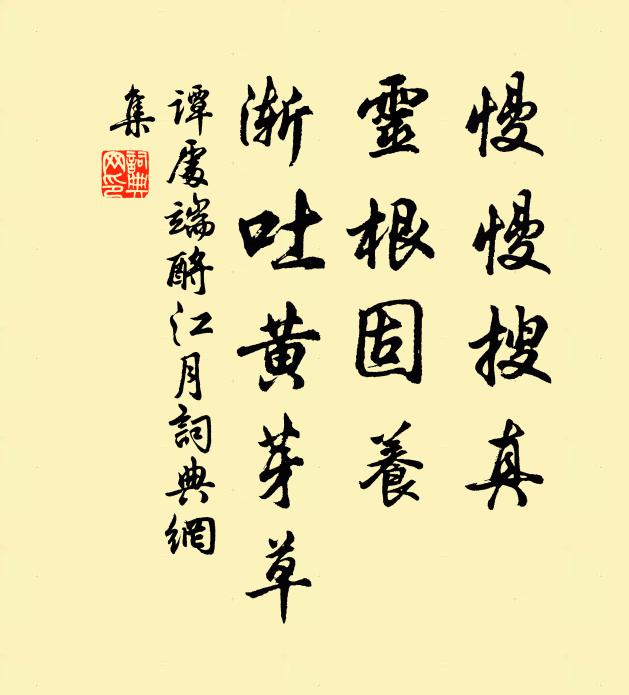 慢慢搜真
靈根固養
漸吐黄芽草
譚處端酹江月詞典網
集
詞典
网印